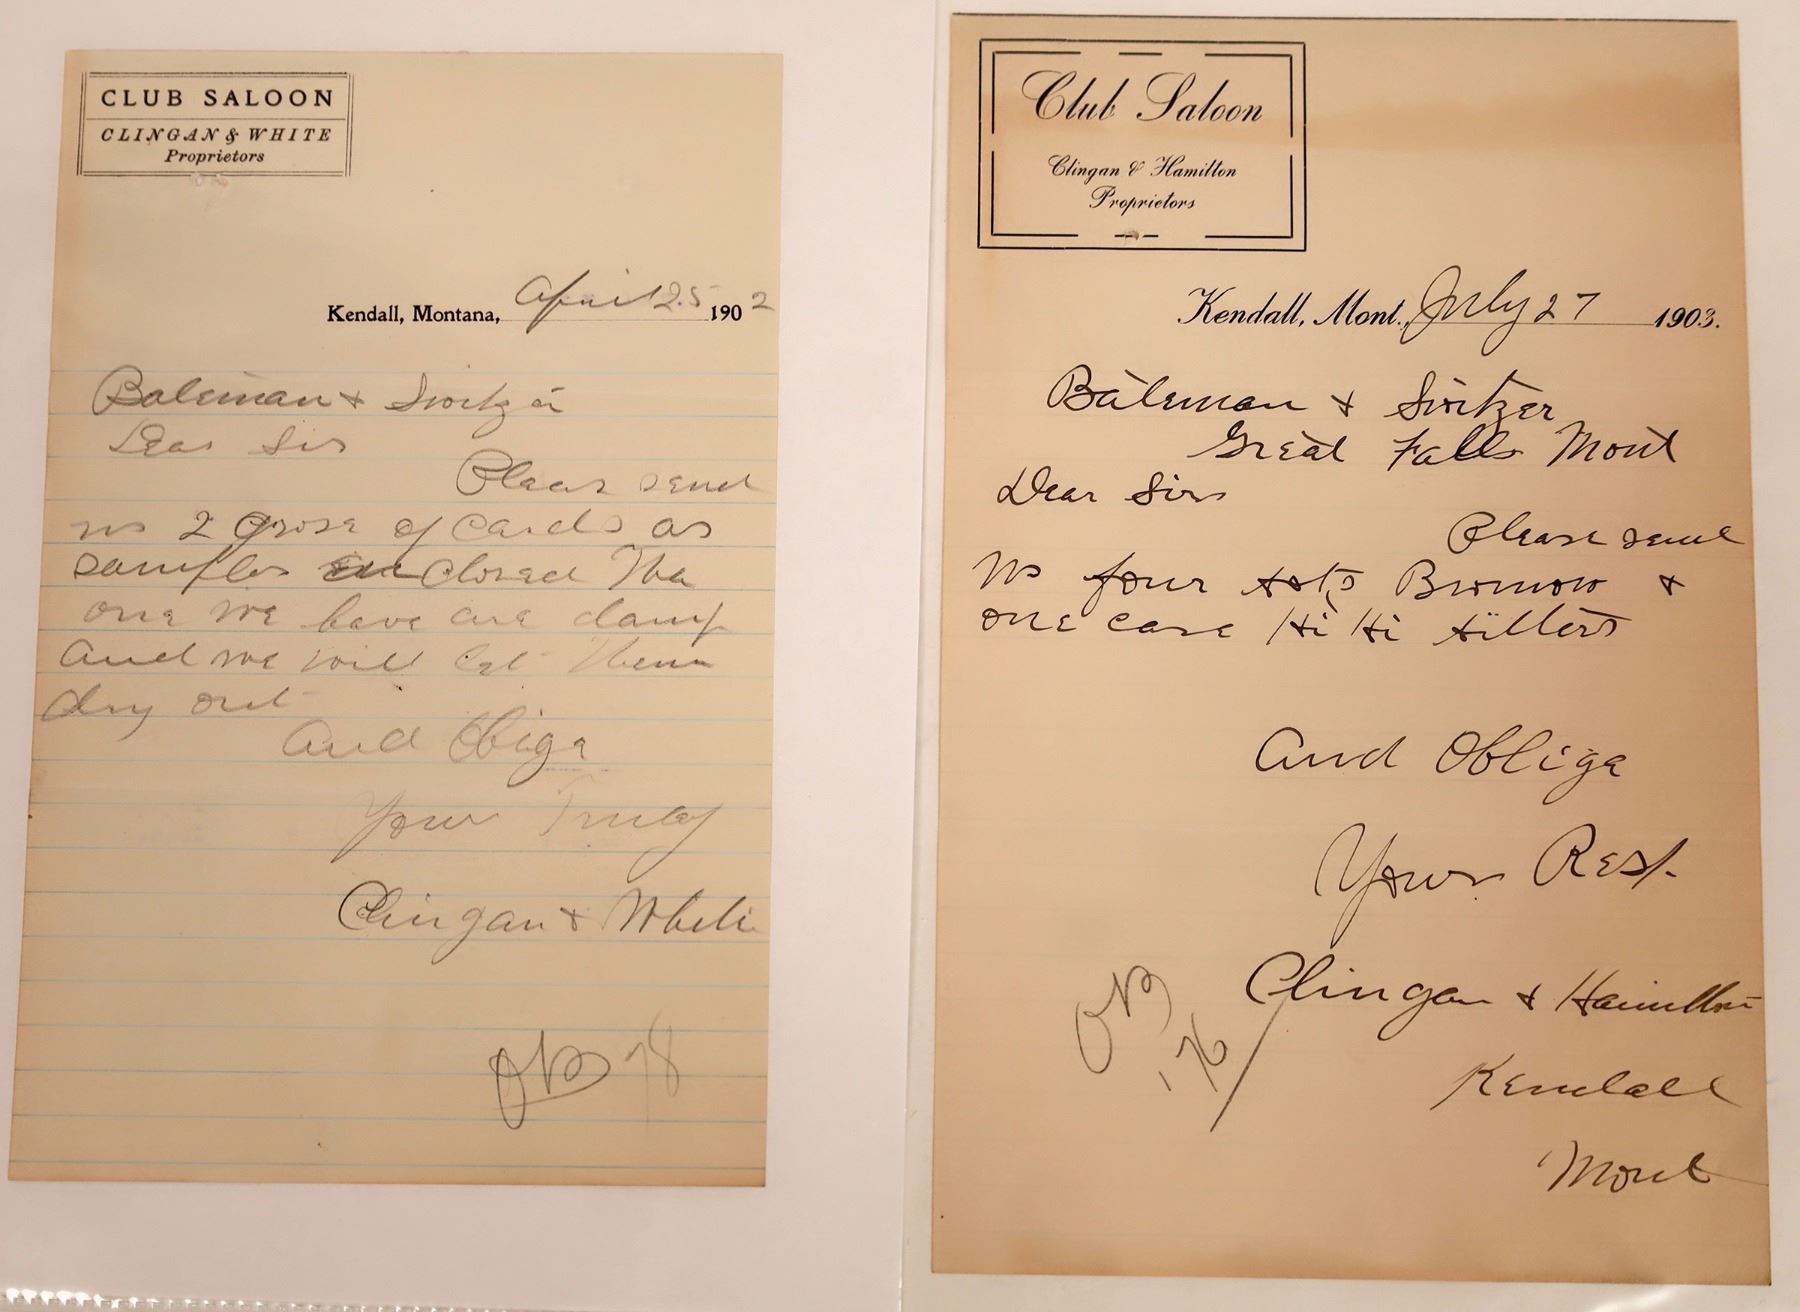 CLUB SALOON
CLINGAN & WHITE
Proprietors
Kendall, Montana, April 25 1902
Bateman & Switzer
Dear Sir
Please send
us 2 Grose of Cards as
samples enclosed The
one we have are damp
And we will let them
dry out
And Oblige
Your Truly
Clingan & White
Club Saloon
Clingan & Hamilton
Proprietors
Kendall, Mont., July 27 1903.
Bateman & Switzer
Great Falls Mont
Dear Sirs
Please send
us four
one case Hi Hi
And Oblige
Yours Resp.
Clingan & Hamilton
Kendall
Mont